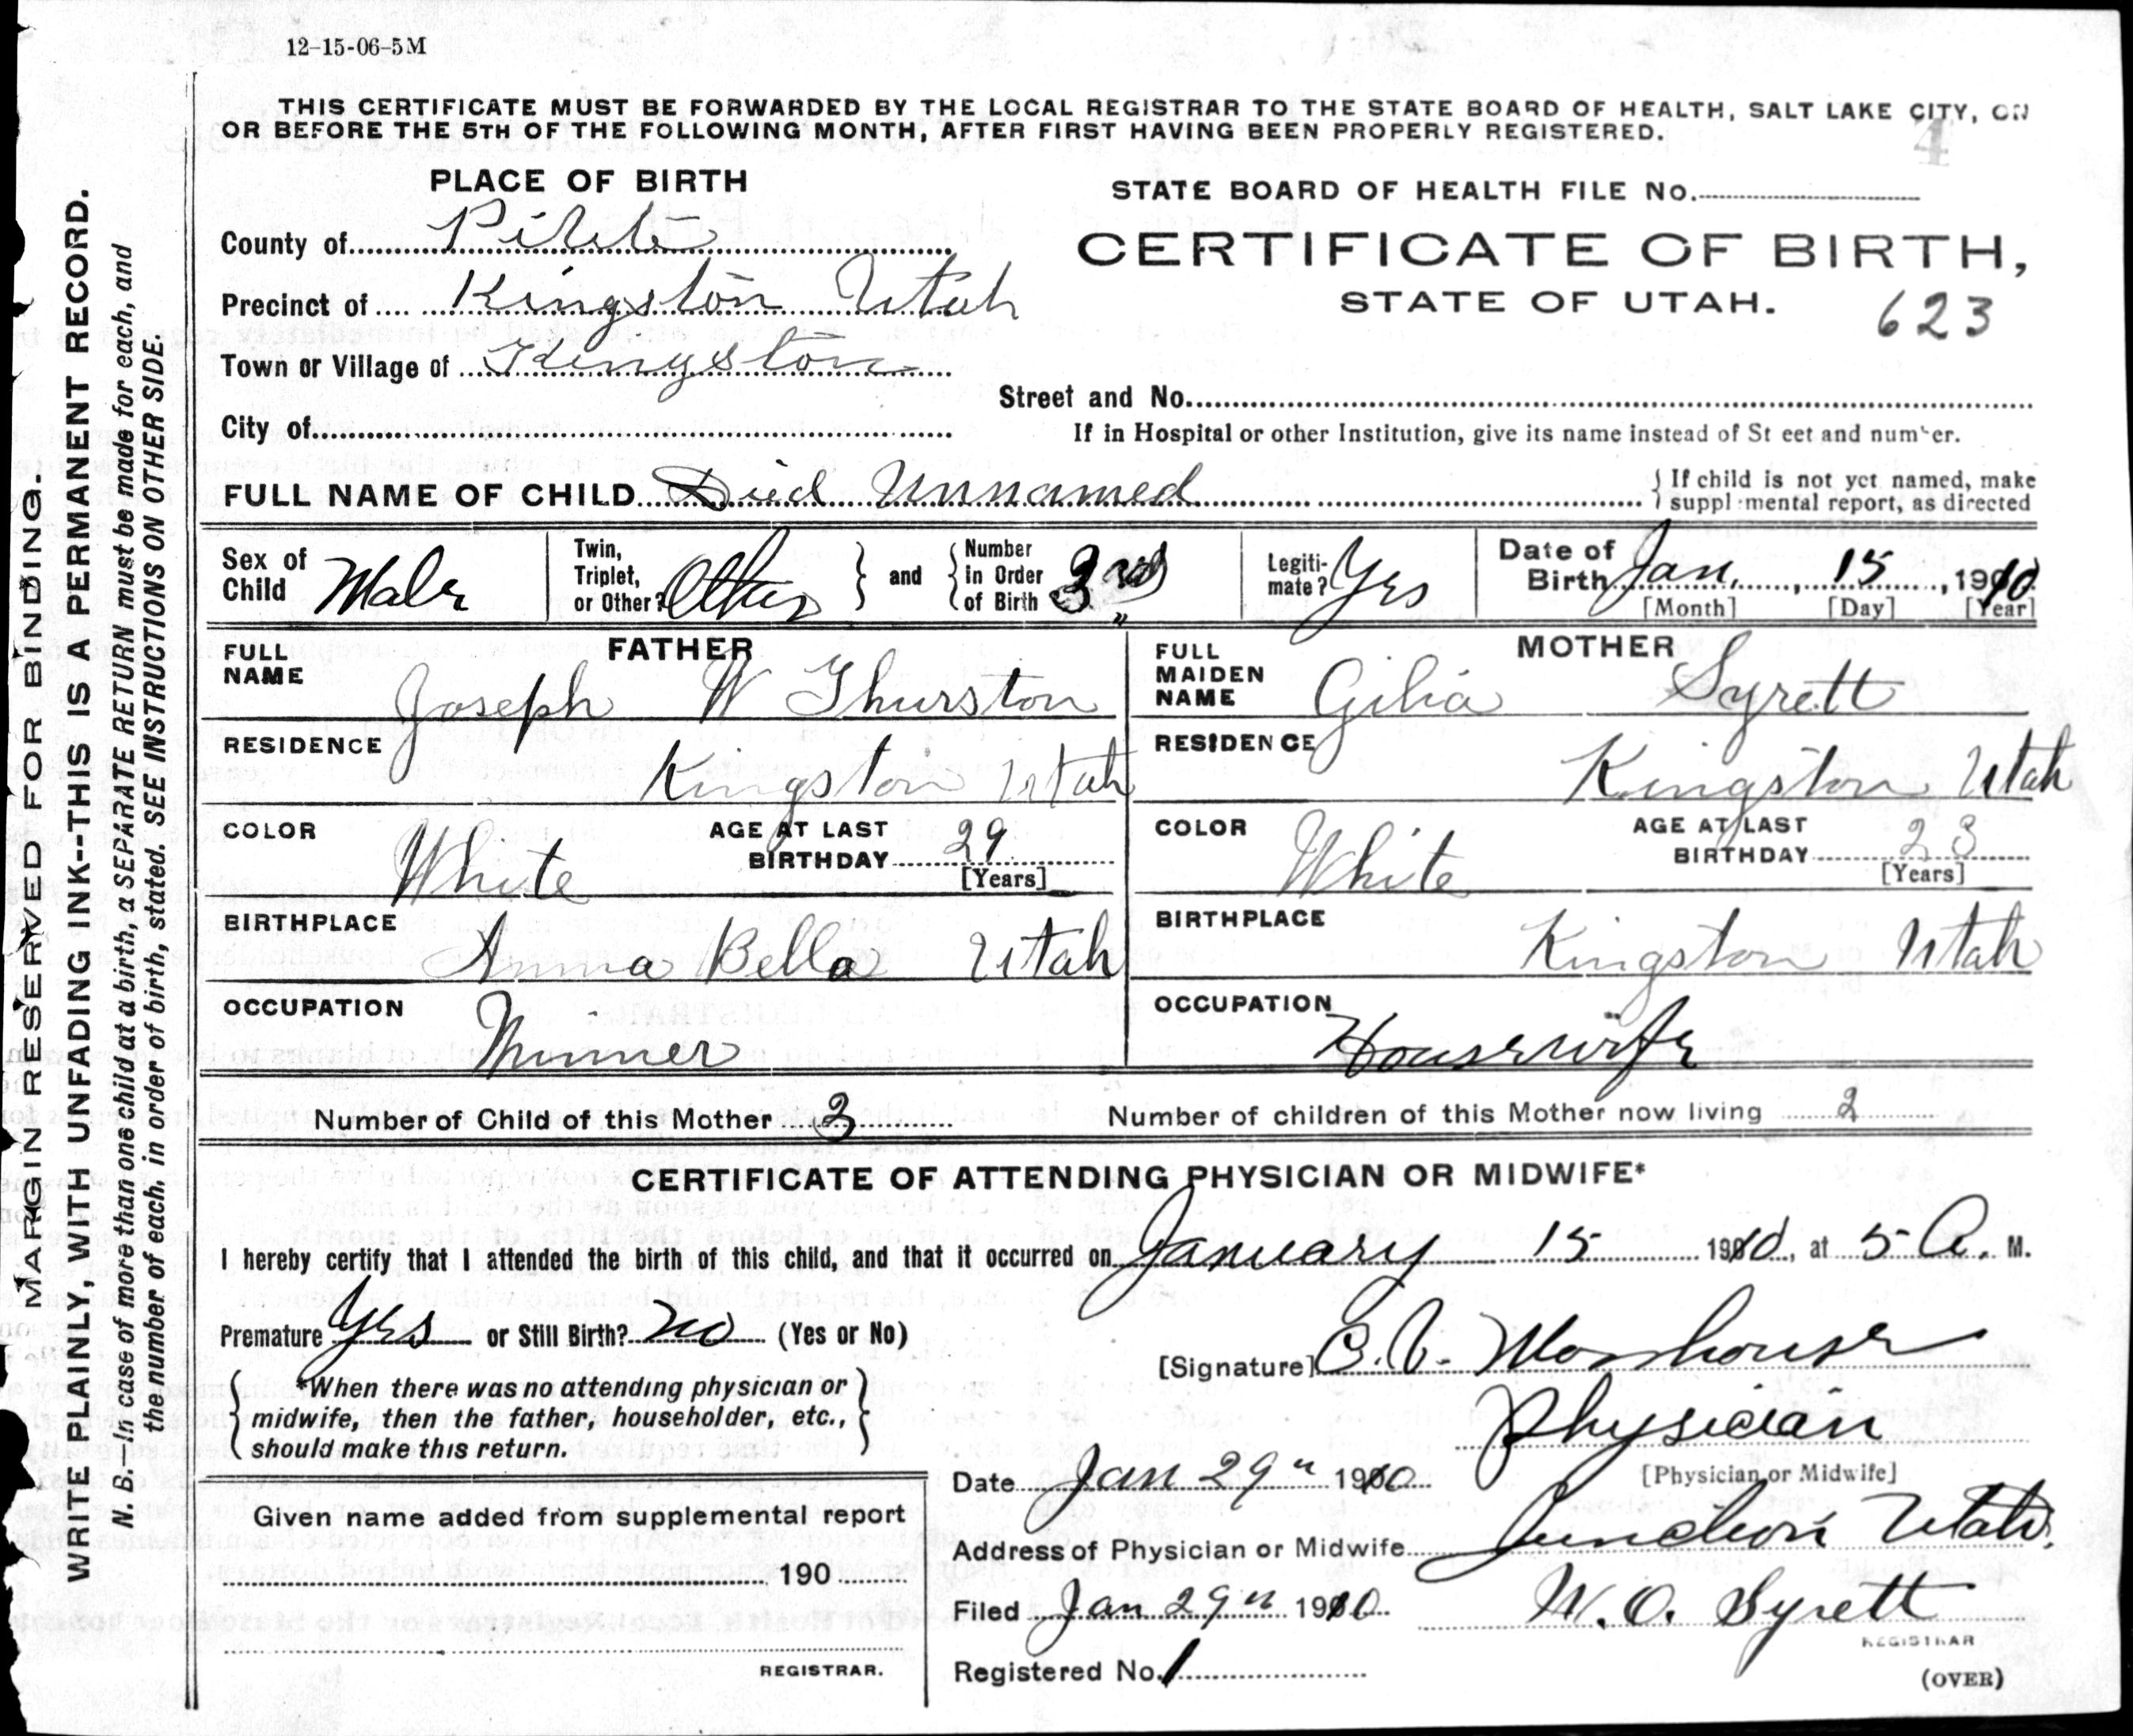 12-15-06-5M
THIS CERTIFICATE MUST BE FORWARDED BY THE LOCAL REGISTRAR TO THE STATE BOARD OF HEALTH, SALT LAKE CITY, ON
OR BEFORE THE 5TH OF THE FOLLOWING MONTH, AFTER FIRST HAVING BEEN PROPERLY REGISTERED.
4
PLACE OF BIRTH
STATE BOARD OF HEALTH FILE No.
County of Piute
CERTIFICATE OF BIRTH,
Precinct of Kingston Utah
STATE OF UTAH.
623
Town or Village of Kingston
Street and No.
City of
If in Hospital or other Institution, give its name instead of St eet and number.
FULL NAME OF CHILD Died Unnamed
If child is not yet named, make
suppl mental report, as directed
Sex of Child Male
Twin, Triplet, or Other? Other
and Number in Order of Birth 3rd
Legiti-mate? Yes
Date of Birth Jan. 15, 1910
[Month] [Day] [Year]
FATHER
FULL NAME Joseph W Thurston
MOTHER
FULL MAIDEN NAME Gilia Syrett
RESIDENCE Kingston Utah
RESIDENCE Kingston Utah
COLOR White
AGE AT LAST BIRTHDAY 29 [Years]
COLOR White
AGE AT LAST BIRTHDAY 23 [Years]
BIRTHPLACE Anna Bella Utah
BIRTHPLACE Kingston Utah
OCCUPATION Minner
OCCUPATION Housewife
Number of Child of this Mother 3
Number of children of this Mother now living 2
CERTIFICATE OF ATTENDING PHYSICIAN OR MIDWIFE*
I hereby certify that I attended the birth of this child, and that it occurred on January 15 1910, at 5 A. M.
Premature Yes or Still Birth? no (Yes or No)
[Signature]
*When there was no attending physician or
midwife, then the father, householder, etc.,
should make this return.
Physician
[Physician or Midwife]
Date Jan 29" 1910
Address of Physician or Midwife Junction Utah.
Filed Jan 29" 1910
W. O. Syrett
REGISTRAR
Registered No. 1
(OVER)
Given name added from supplemental report
190
REGISTRAR.
MARGIN RESERVED FOR BINDING.
WRITE PLAINLY, WITH UNFADING INK--THIS IS A PERMANENT RECORD.
N. B.—In case of more than one child at a birth, a SEPARATE RETURN must be made for each, and
the number of each, in order of birth, stated. SEE INSTRUCTIONS ON OTHER SIDE.